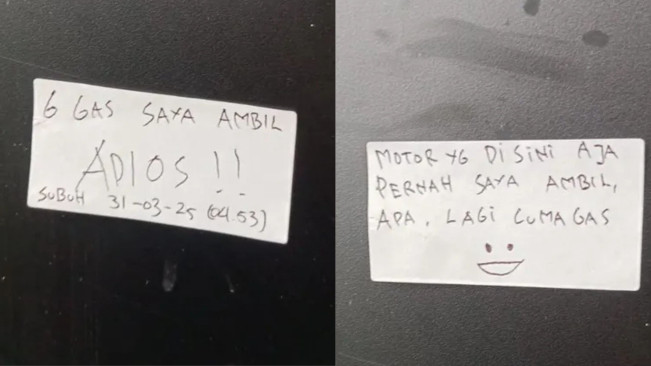 6 GAS SAYA AMBIL
ADIOS !!
SUBUH 31-03-25 (04.53)
MOTOR YG DISINI AJA
PERNAH SAYA AMBIL,
APA, LAGI CUMA GAS